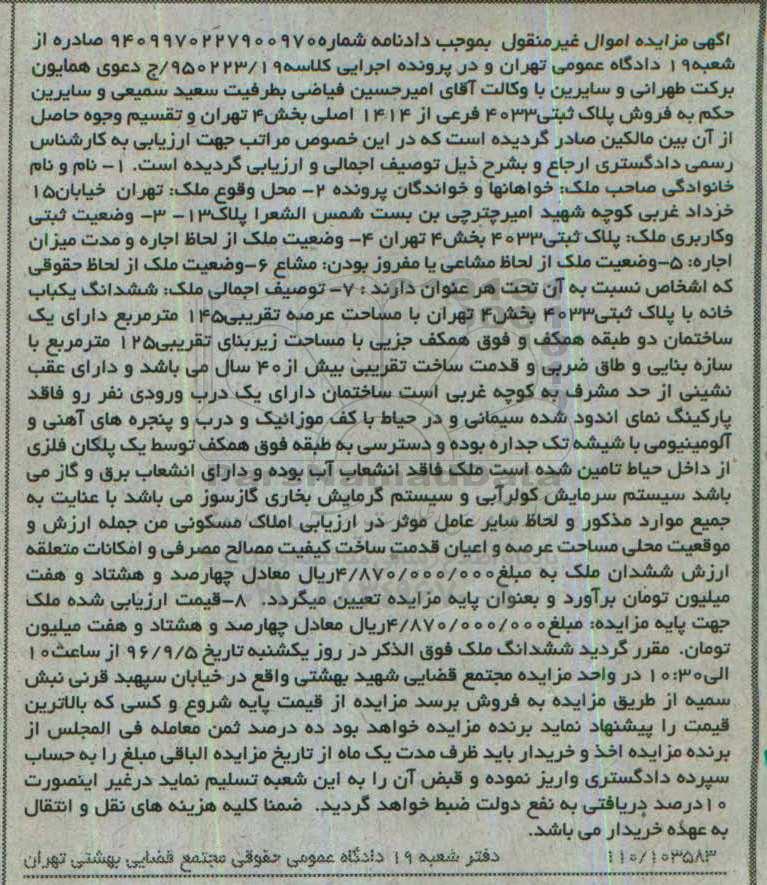 آگهی مزایده اموال غیرمنقول بموجب دادنامه شماره۹۴۰۹۹۷۰۲۲۷۹۰۰۹۷۰ صادره از
شعبه۱۹ دادگاه عمومی تهران و در پرونده اجرایی کلاسه۹۵۰۲۲۳/۱۹/ج دعوی همایون
برکت طهرانی و سایرین با وکالت آقای امیرحسین فیاضی بطرفیت سعید سمیعی و سایرین
حکم به فروش پلاک ثبتی۴۰۳۳ فرعی از ۱۴۱۴ اصلی بخش۴ تهران و تقسیم وجوه حاصل
از آن بین مالکین صادر گردیده است که در این خصوص مراتب جهت ارزیابی به کارشناس
رسمی دادگستری ارجاع و بشرح ذیل توصیف اجمالی و ارزیابی گردیده است. ۱- نام و نام
خانوادگی صاحب ملک: خواهانها و خواندگان پرونده ۲- محل وقوع ملک: تهران خیابان۱۵
خرداد غربی کوچه شهید امیرچترچی بن بست شمس الشعرا پلاک۱۳- ۳- وضعیت ثبتی
وکاربری ملک: پلاک ثبتی۴۰۳۳ بخش۴ تهران ۴- وضعیت ملک از لحاظ اجاره و مدت میزان
اجاره: ۵-وضعیت ملک از لحاظ مشاعی یا مفروز بودن: مشاع ۶-وضعیت ملک از لحاظ حقوقی
که اشخاص نسبت به آن تحت هر عنوان دارند : ۷- توصیف اجمالی ملک: ششدانگ یکباب
خانه با پلاک ثبتی۴۰۳۳ بخش۴ تهران با مساحت عرصه تقریبی۱۴۵ مترمربع دارای یک
ساختمان دو طبقه همکف و فوق همکف جزیی با مساحت زیربنای تقریبی۱۲۵ مترمربع با
سازه بنایی و طاق ضربی و قدمت ساخت تقریبی بیش از۴۰ سال می باشد و دارای عقب
نشینی از حد مشرف به کوچه غربی است ساختمان دارای یک درب ورودی نفر رو فاقد
پارکینگ نمای اندود شده سیمانی و در حیاط با کف موزائیک و درب و پنجره های آهنی و
آلومینیومی با شیشه تک جداره بوده و دسترسی به طبقه فوق همکف توسط یک پلکان فلزی
از داخل حیاط تامین شده است ملک فاقد انشعاب آب بوده و دارای انشعاب برق و گاز می
باشد سیستم سرمایش کولرآبی و سیستم گرمایش بخاری گازسوز می باشد با عنایت به
جمیع موارد مذکور و لحاظ سایر عامل موثر در ارزیابی املاک مسکونی من جمله ارزش و
موقعیت محلی مساحت عرصه و اعیان قدمت ساخت کیفیت مصالح مصرفی و امکانات متعلقه
ارزش ششدان ملک به مبلغ۴/۸۷۰/۰۰۰/۰۰۰ریال معادل چهارصد و هشتاد و هفت
میلیون تومان برآورد و بعنوان پایه مزایده تعیین میگردد. ۸-قیمت ارزیابی شده ملک
جهت پایه مزایده: مبلغ۴/۸۷۰/۰۰۰/۰۰۰ریال معادل چهارصد و هشتاد و هفت میلیون
تومان. مقرر گردید ششدانگ ملک فوق الذکر در روز یکشنبه تاریخ ۹۶/۹/۵ از ساعت۱۰
الی۱۰:۳۰ در واحد مزایده مجتمع قضایی شهید بهشتی واقع در خیابان سپهبد قرنی نبش
سمیه از طریق مزایده به فروش برسد مزایده از قیمت پایه شروع و کسی که بالاترین
قیمت را پیشنهاد نماید برنده مزایده خواهد بود ده درصد ثمن معامله فی المجلس از
برنده مزایده اخذ و خریدار باید ظرف مدت یک ماه از تاریخ مزایده الباقی مبلغ را به حساب
سپرده دادگستری واریز نموده و قبض آن را به این شعبه تسلیم نماید درغیر اینصورت
۱۰درصد دریافتی به نفع دولت ضبط خواهد گردید. ضمنا کلیه هزینه های نقل و انتقال
به عهده خریدار می باشد.
۱۱۰/۱۰۳۵۸۳ دفتر شعبه ۱۹ دادگاه عمومی حقوقی مجتمع قضایی بهشتی تهران